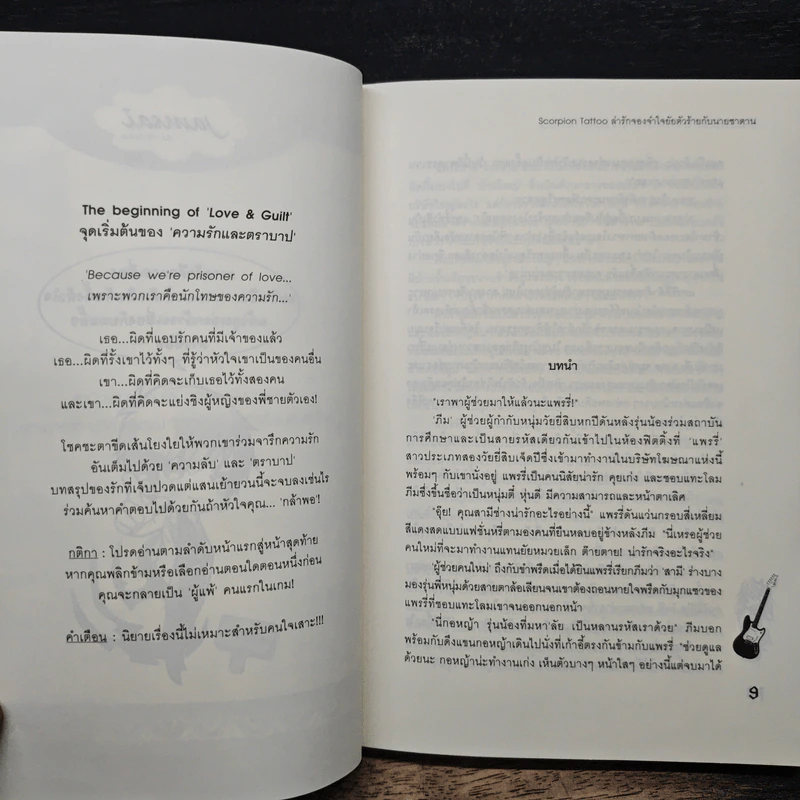 The beginning of 'Love & Guilt'
จุดเริ่มต้นของ 'ความรักและตราบาป'
'Because we're prisoner of love...
เพราะพวกเราคือนักโทษของความรัก...'
เธอ...ผิดที่แอบรักคนที่มีเจ้าของแล้ว
เธอ...ผิดที่รั้งเขาไว้ทั้งๆ ที่รู้ว่าหัวใจเขาเป็นของคนอื่น
เขา...ผิดที่คิดจะเก็บเธอไว้ทั้งสองคน
และเขา...ผิดที่คิดจะแย่งชิงผู้หญิงของพี่ชายตัวเอง!
โชคชะตาขีดเส้นโยงใยให้พวกเขาร่วมจารึกความรัก
อันเต็มไปด้วย 'ความลับ' และ 'ตราบาป'
บทสรุปของรักที่เจ็บปวดแต่แสนเย้ายวนนี้จะจบลงเช่นไร
ร่วมค้นหาคำตอบไปด้วยกันถ้าหัวใจคุณ... 'กล้าพอ!
กติกา : โปรดอ่านตามลำดับหน้าแรกสู่หน้าสุดท้าย
หากคุณพลิกข้ามหรือเลือกอ่านตอนใดตอนหนึ่งก่อน
คุณจะกลายเป็น 'ผู้แพ้' คนแรกในเกม!
คำเตือน : นิยายเรื่องนี้ไม่เหมาะสำหรับคนใจเสาะ!!!
Scorpion Tattoo ล่ารักจองจำใจยัยตัวร้ายกับนายซาตาน
บทนำ
"เราพาผู้ช่วยมาให้แล้วนะแพรรี่!"
'ภีม' ผู้ช่วยผู้กำกับหนุ่มวัยยี่สิบหกปีดันหลังรุ่นน้องร่วมสถาบัน
การศึกษาและเป็นสายรหัสเดียวกันเข้าไปในห้องฟิตติ้งที่ 'แพรรี่'
สาวประเภทสองวัยยี่สิบเจ็ดปีซึ่งเข้ามาทำงานในบริษัทโฆษณาแห่งนี้
พร้อมๆ กับเขานั่งอยู่ แพรรี่เป็นคนนิสัยน่ารัก คุยเก่ง และชอบแทะโลม
ภีมซึ่งขึ้นชื่อว่าเป็นหนุ่มตี๋ หุ่นดี มีความสามารถและหน้าตาเลิศ
"อุ๊ย! คุณสามีช่างน่ารักอะไรอย่างนี้" แพรรี่ดันแว่นกรอบสี่เหลี่ยม
สีแดงสดแบบแฟชั่นหรี่ตามองคนที่ยืนหลบอยู่ข้างหลังภีม "นี่เหรอผู้ช่วย
คนใหม่ที่จะมาทำงานแทนยัยหมวยเล็ก ต๊ายตาย! น่ารักจริงอะไรจริง"
'ผู้ช่วยคนใหม่' ถึงกับขำพรืดเมื่อได้ยินแพรรี่เรียกภีมว่า 'สามี' ร่างบาง
มองรุ่นพี่หนุ่มด้วยสายตาล้อเลียนจนเขาต้องถอนหายใจพรืดกับมุกแซวของ
แพรรี่ที่ชอบแทะโลมเขาจนออกนอกหน้า
"นี่กอหญ้า รุ่นน้องที่มหา'ลัย เป็นหลานรหัสเราด้วย" ภีมบอก
พร้อมกับดึงแขนกอหญ้าเดินไปนั่งที่เก้าอี้ตรงกันข้ามกับแพรรี่ "ช่วยดูแล
ด้วยนะ กอหญ้าน่ะทำงานเก่ง เห็นตัวบางๆ หน้าใสๆ อย่างนี้แต่จบมาได้
9